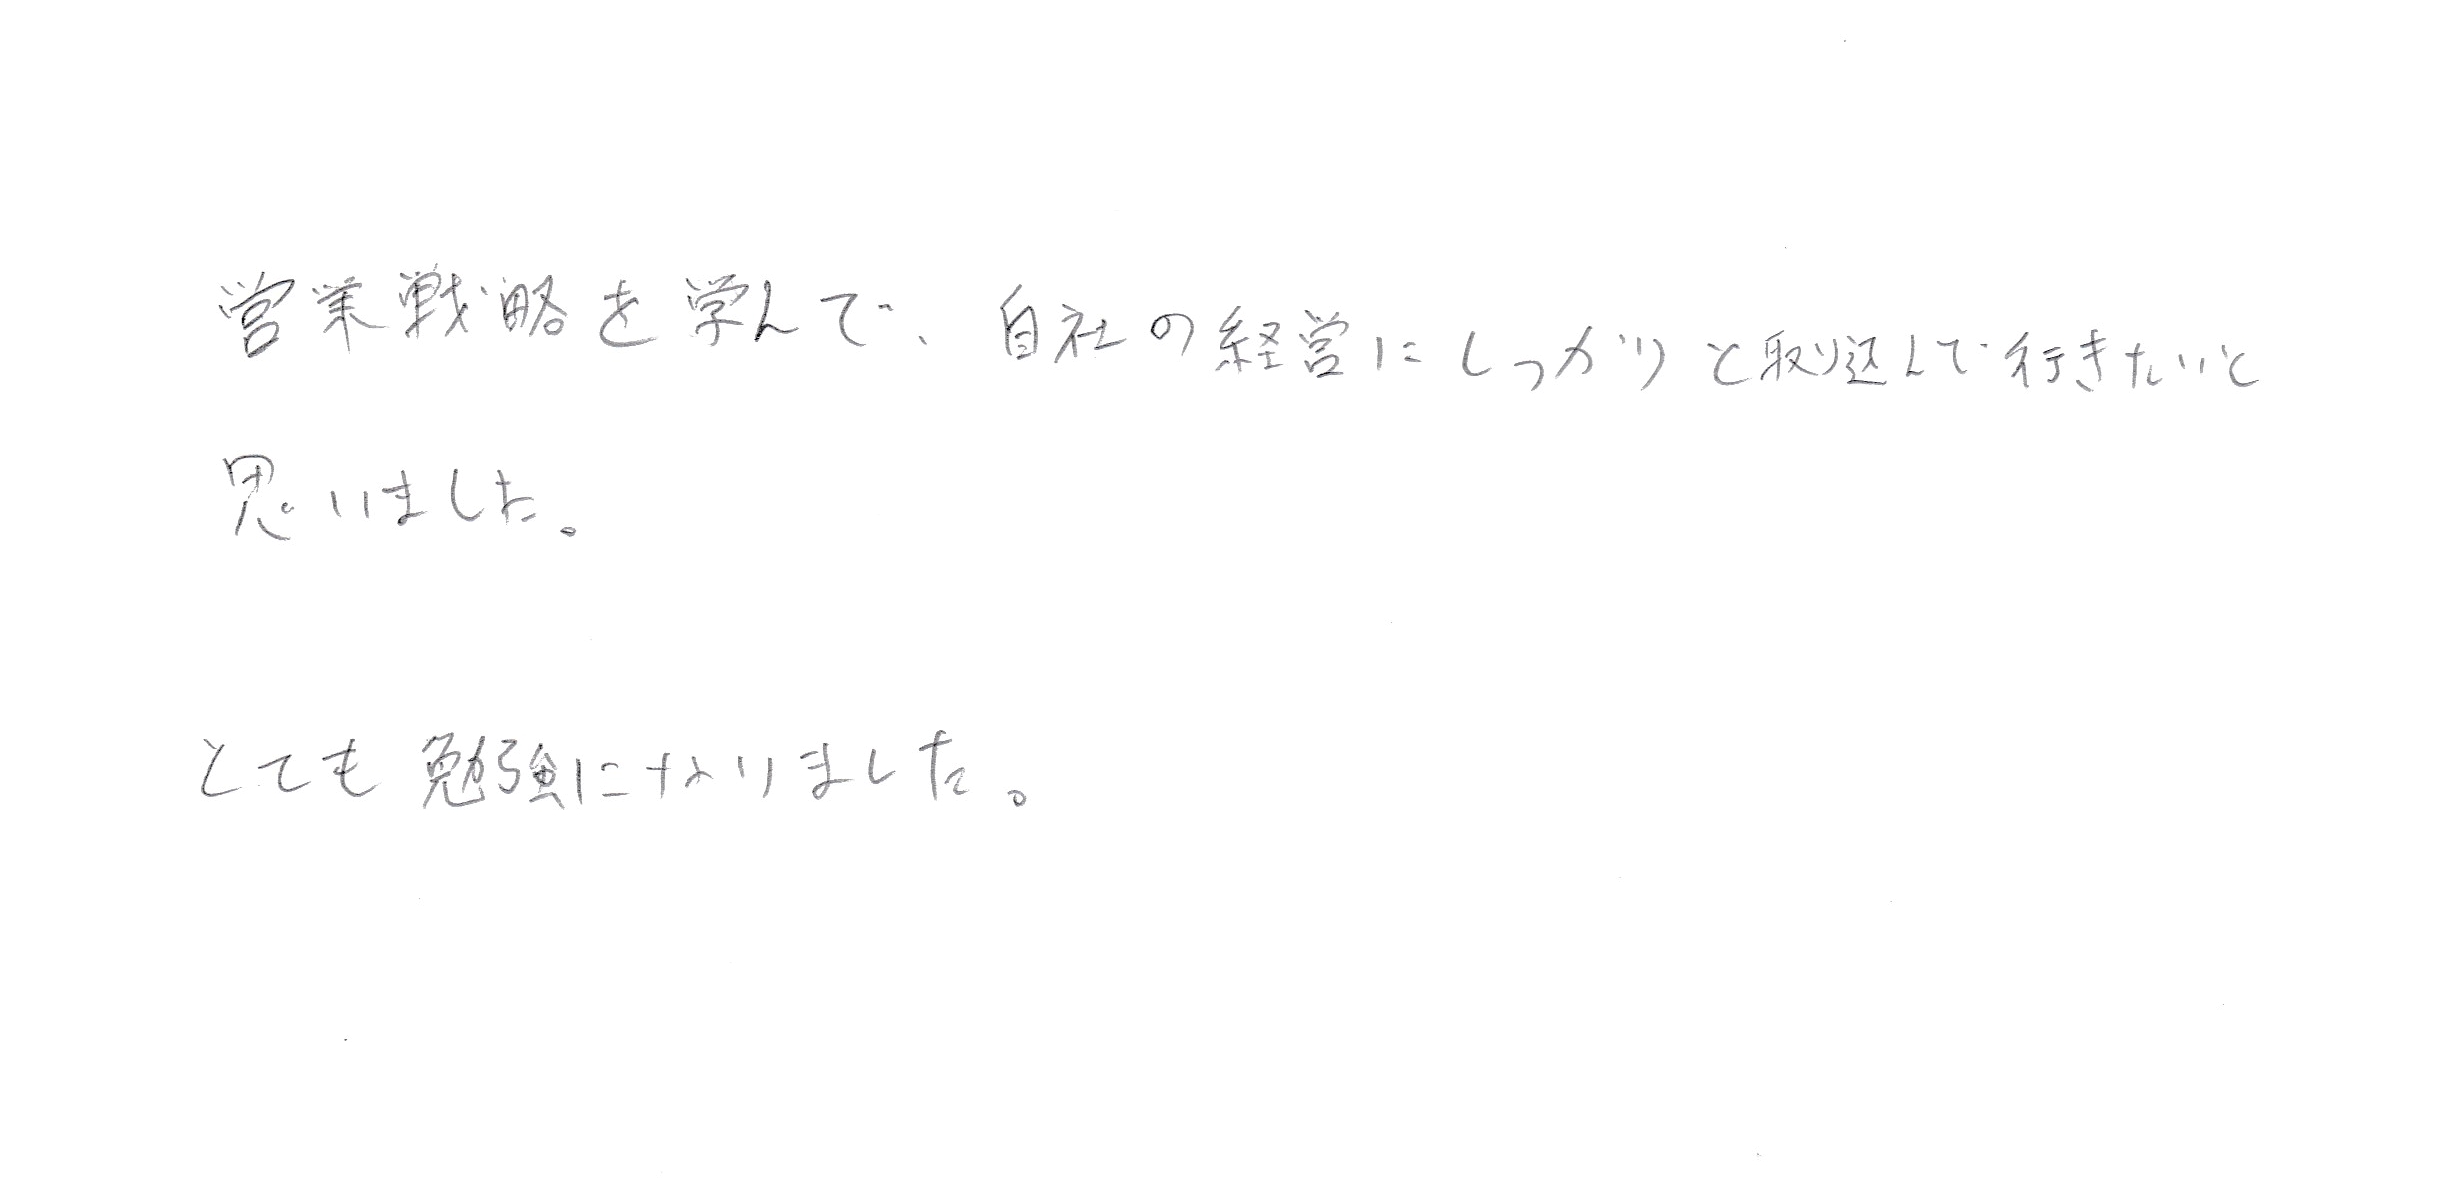 営業戦略を学んで、自社の経営にしっかりと取り込んで行きたいと
思いました。
とても勉強になりました。